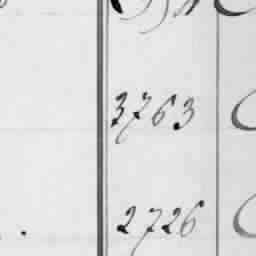 3763
2726